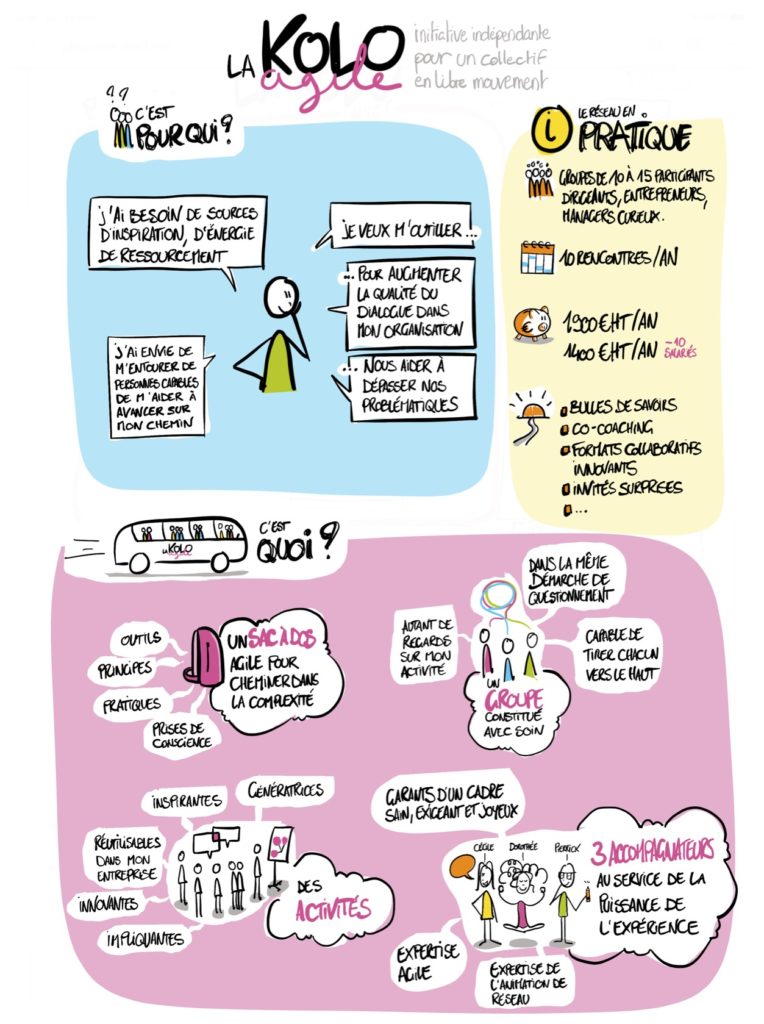 LA KOLO
agile
initiative indépendante
pour un collectif
en libre mouvement
??
C'EST
POUR QUI ?
J'AI BESOIN DE SOURCES
D'INSPIRATION, D'ÉNERGIE
DE RESSOURCEMENT
JE VEUX M'OUTILLER ...
... POUR AUGMENTER
LA QUALITÉ DU
DIALOGUE DANS
MON ORGANISATION
J'AI ENVIE DE
M'ENTOURER DE
PERSONNES CAPABLES
DE M'AIDER À
AVANCER SUR
MON CHEMIN
... NOUS AIDER À
DÉPASSER NOS
PROBLÉMATIQUES
i
LE RÉSEAU EN
PRATIQUE
GROUPES DE 10 À 15 PARTICIPANTS
DIRIGEANTS, ENTREPRENEURS,
MANAGERS CURIEUX.
10 RENCONTRES/AN
€
1900€HT/AN
1400€HT/AN -10
SALARIÉS
BULLES DE SAVOIRS
CO-COACHING
FORMATS COLLABORATIFS
INNOVANTS
INVITÉS SURPRISES
...
LA KOLO
agile
C'EST
QUOI ?
OUTILS
PRINCIPES
PRATIQUES
PRISES DE
CONSCIENCE
UN SAC À DOS
AGILE POUR
CHEMINER DANS
LA COMPLEXITÉ
DANS LA MÊME
DÉMARCHE DE
QUESTIONNEMENT
AUTANT DE
REGARDS
SUR MON
ACTIVITÉ
CAPABLE DE
TIRER CHACUN
VERS LE HAUT
UN
GROUPE
CONSTITUÉ
AVEC SOIN
INSPIRANTES
GÉNÉRATRICES
RÉUTILISABLES
DANS MON
ENTREPRISE
INNOVANTES
IMPLIQUANTES
DES
ACTIVITÉS
GARANTS D'UN CADRE
SAIN, EXIGEANT ET JOYEUX
CÉCILE
DOROTHÉE
PIERRICK
3 ACCOMPAGNATEURS
AU SERVICE DE LA
PUISSANCE DE
L'EXPÉRIENCE
EXPERTISE
AGILE
EXPERTISE DE
L'ANIMATION DE
RÉSEAU